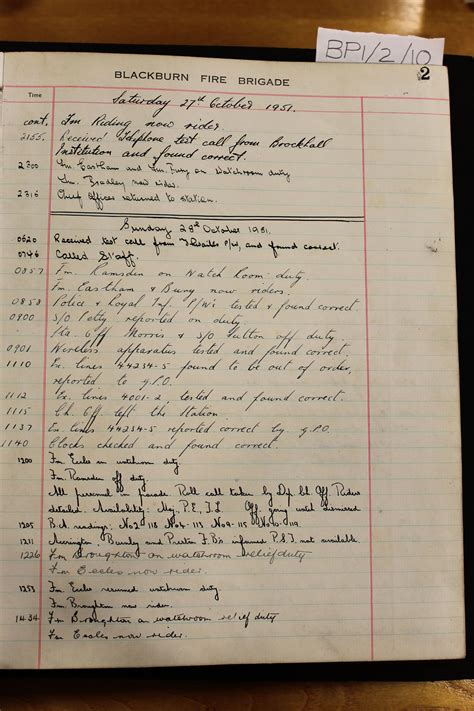 BP1/2/10
2
BLACKBURN FIRE BRIGADE
Time
Saturday 27th October 1951.
cont. Fm Riding now rider.
2155. Received Telephone test call from Brockhall
Institution and found correct.
2300 Fm. Eastham and Fm. Bury on Watchroom duty
Fm. Bradley now rides.
2316 Chief Officer returned to station.
Sunday 28th October 1951.
0620 Received test call from Thwaites P/W, and found correct.
0746 Called Staff.
0857 Fm. Ramsden on Watch Room duty.
Fm. Eastham & Bury now riders.
0858 Police & Royal Inf. P/W's tested & found correct.
0900 S/O Petty reported on duty.
Stn. Off Morris & S/O Sutton off duty.
0901 Wireless apparatus tested and found correct.
1110 Ex. lines 44234-5 found to be out of order,
reported to G.P.O.
1112 Ex. lines 4001-2, tested and found correct.
1115 Ch. Off left the Station.
1137 Ex. lines 44234-5 reported correct by G.P.O.
1140 Clocks checked and found correct.
1200 Fm Eccles on watchroom duty
Fm. Ramsden off duty.
All personnel on parade Roll call taken by Dep Ch. Off Riders
detailed. Availability: Maj. P.E, T.L Off. going until dismissed
1205 B.A readings: No2 115 No4-113 No9-115 No10-119.
1211 Accrington, Burnley and Preston F.B's informed P.S.T. not available.
1226 Fm Broughton on watchroom relief duty
Fm Eccles now rider.
1253 Fm. Eccles resumed watchroom duty.
Fm. Broughton now rider.
1434 Fm Broughton on watchroom relief duty
Fm Eccles now rider.